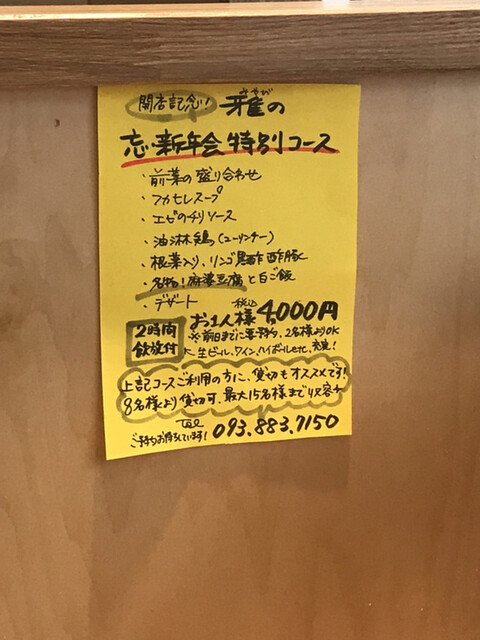 開店記念! 雅の
みやび
忘・新年会 特別コース
・前菜の盛り合わせ
・フカヒレスープ
・エビのチリソース
・油淋鶏(ユーリンチー)
・根菜入り、リンゴ黒酢酢豚
・名物!麻婆豆腐と白ご飯
・デザート
税込
お1人様 4,000円
2時間
飲放付
※前日までに要予約、2名様よりOK
生ビール、ワイン、ハイボールetc、充実!
上記コースご利用の方に、貸切もオススメです!
8名様より貸切可、最大15名様まで収容可
Tel
ご予約お待ちしています! 093.883.7150